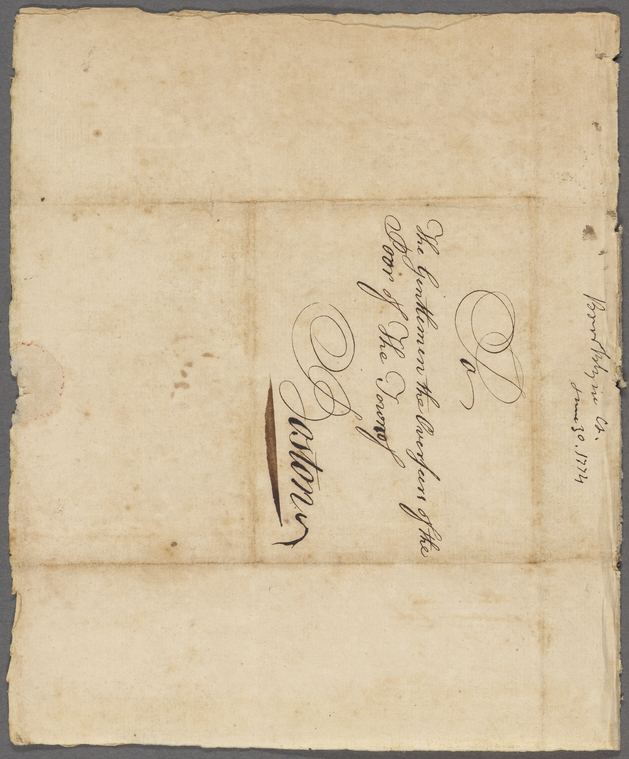 Brooklyn Ct.
June 30. 1774
To
The Gentlemen the Overseers of the
Poor of The Town of
Boston